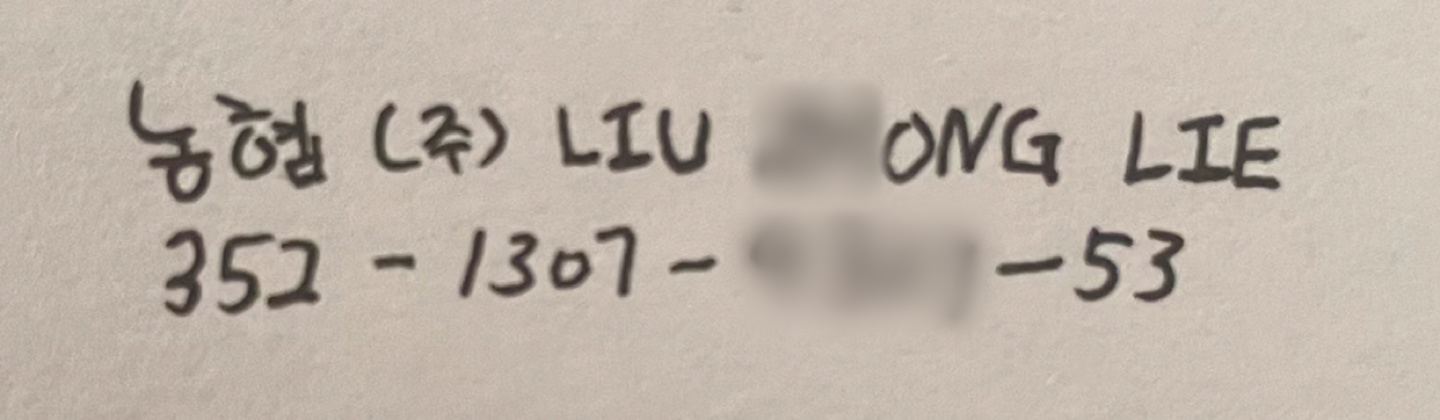 농협 (주) LIU LIE
352-1307- -53